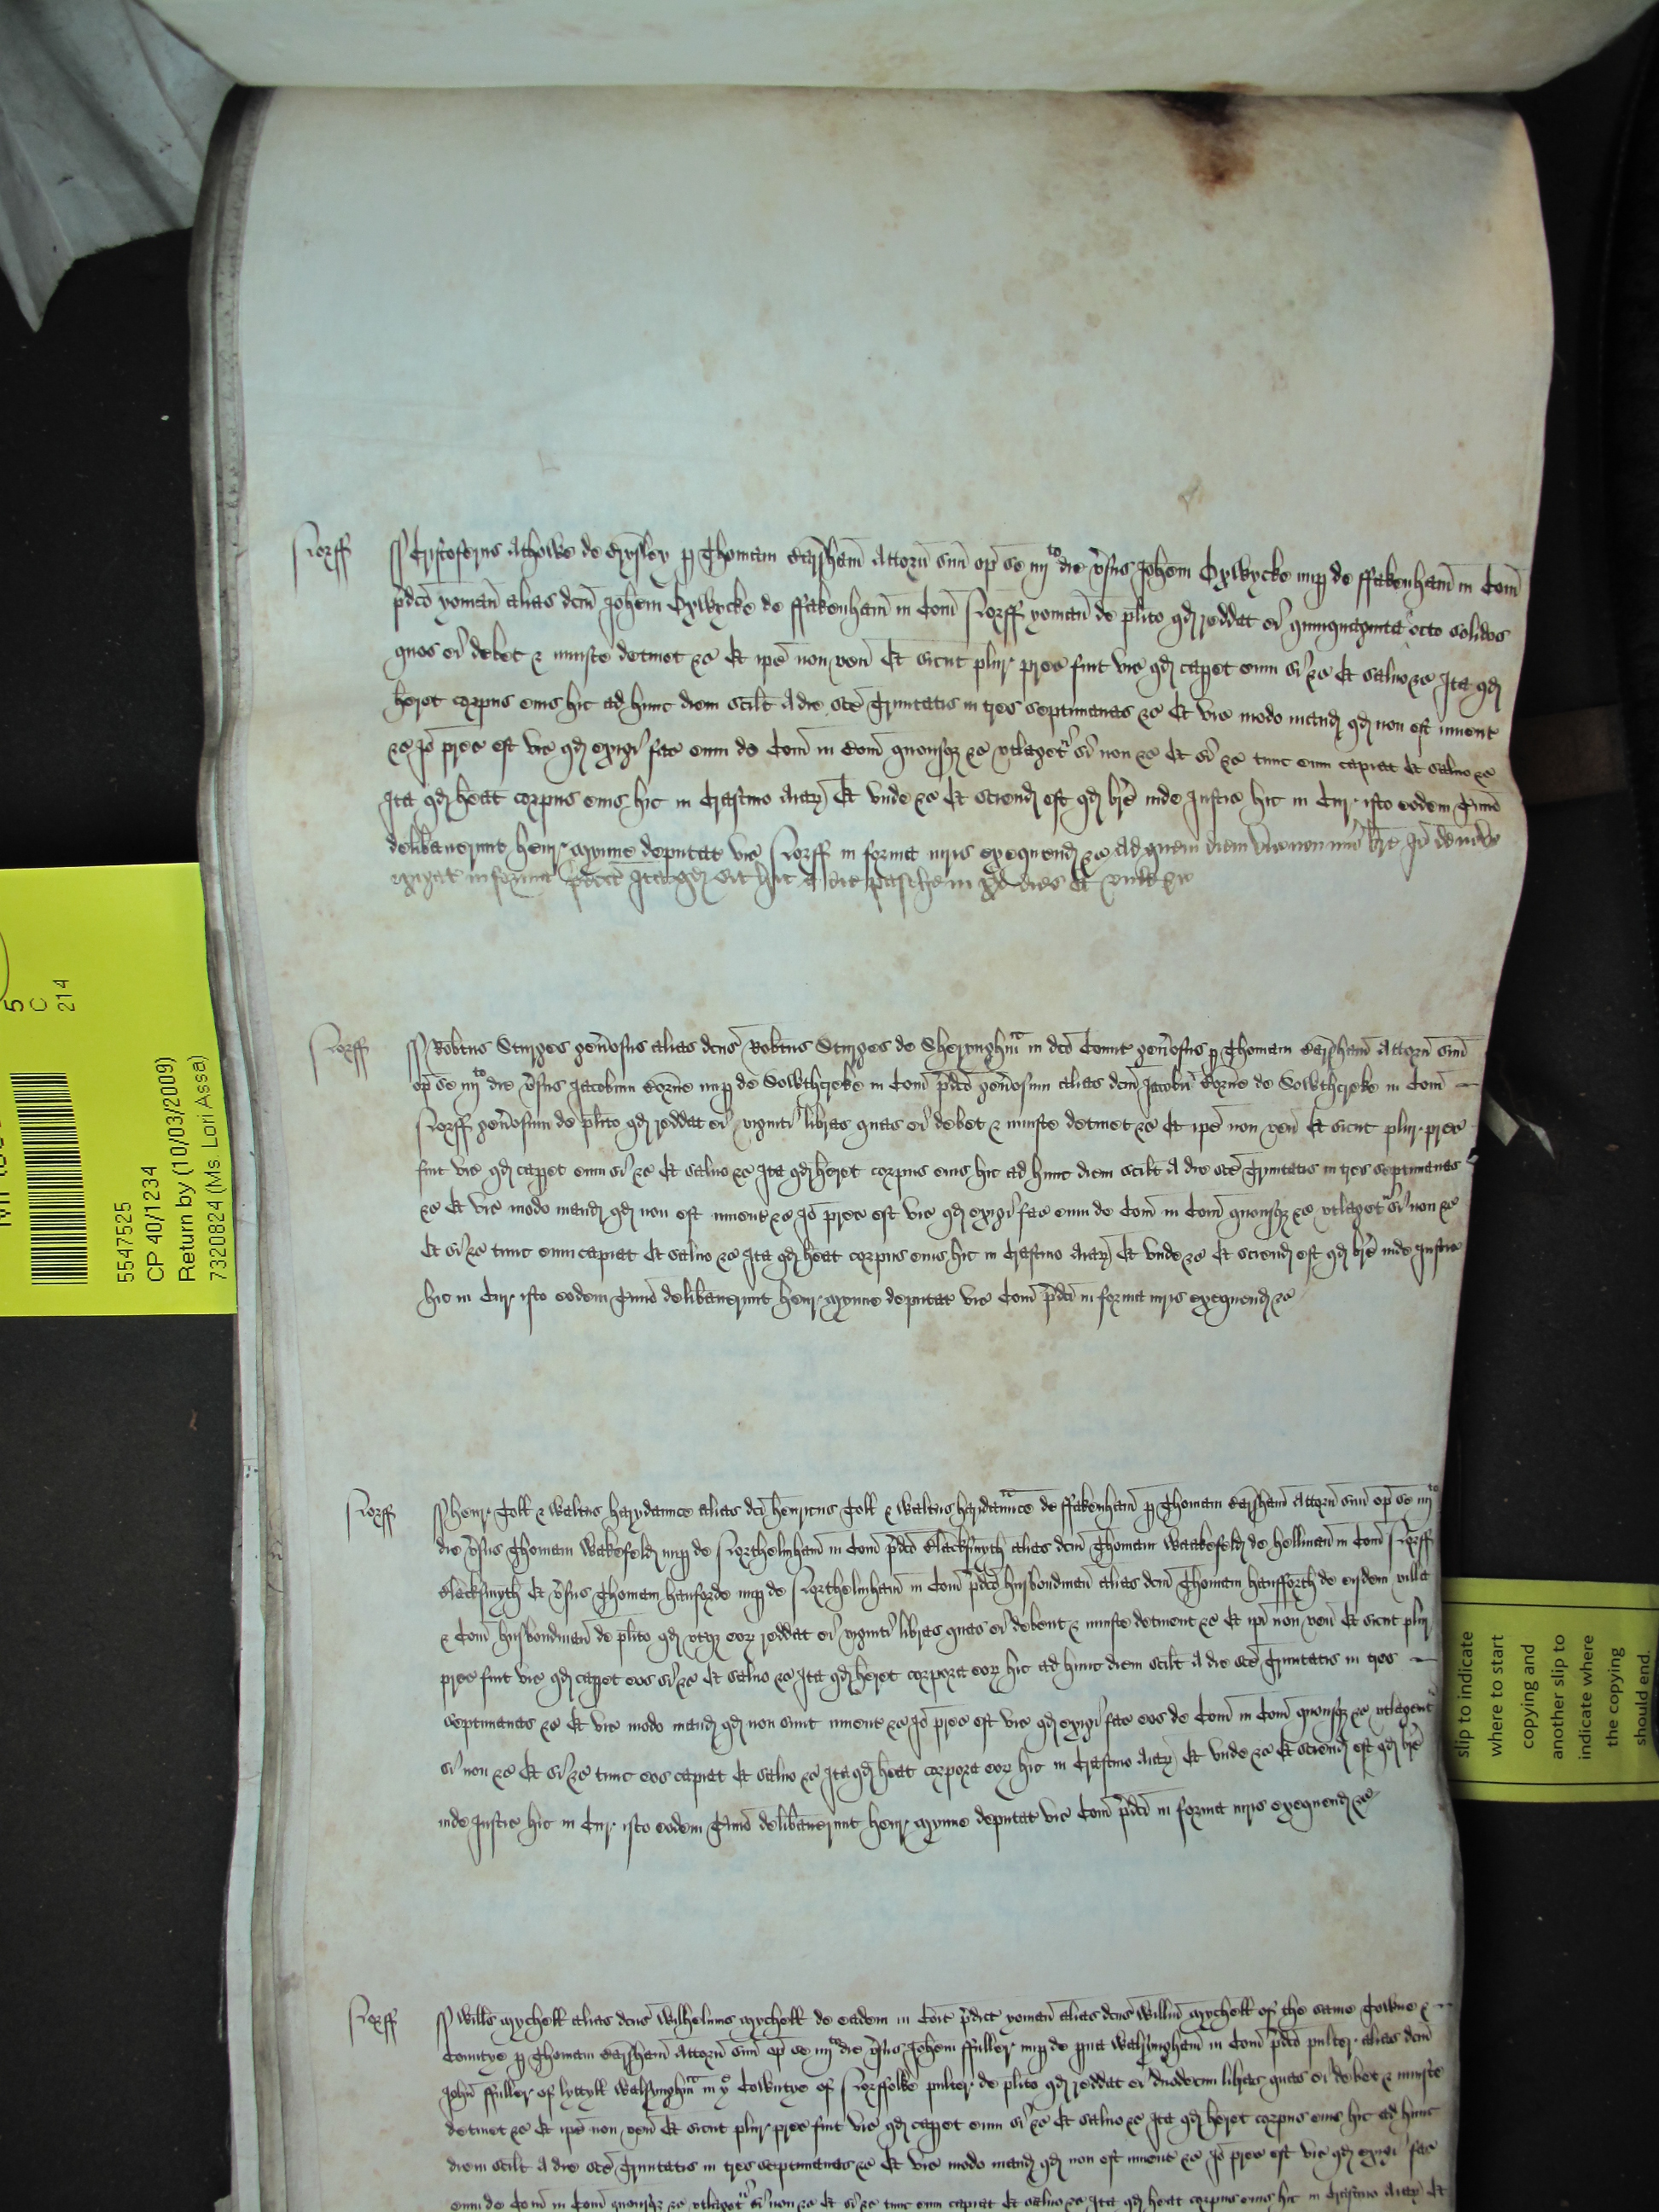 Norff
Cristoferus Athowe de Brysley p Thomam Earsham Attorn suu op se iiij to die vsus Johem Oxwycke nup de ffakenham in Com
pdco yoman alias dcm Johem Oxwycke de ffakenham in Com Norff yoman de plito qd reddat ei quinquaginta octo solidos
quos ei debet & iniuste detinet &c Et ipe non ven Et sicut plur prec fuit vic qd capet eum si &c Et saluo &c Ita qd
heret corpus eius hic ad hunc diem scilt A die sce Trinitatis in tres septimanas &c Et vic modo mand qd non est inuent
&c Io prec est vic qd exigi fac eum de Com in Com quousq &c vtlaget si non &c Et si &c tunc eum capiat Et saluo &c
Ita qd heat corpus eius hic in Crastino Aiar Et vnde &c Et sciend est qd bre inde Justic hic in Cur isto eodem Tmio
delibauerunt henr Mynne deputat vic Norff in forma iuris exequend &c Ad quem diem vic non mis bre Io de nouo
exigat in forma pdict Ita qd sit hic a die pasche in xv dies Et vnde &c
Norff
Robtus Sturges genosus alias dcus Robtus Sturges de Sheryngham in dco Comit genosus p Thomam Earsham Attorn suu
op se iiij to die vsus Jacobum Borne nup de Sowthcreke in Com pdco genosum alias dcm Jacobu Borne de Sowthcreke in Com
Norff genosum de plito qd reddat ei viginti libras quas ei debet & iniuste detinet &c Et ipe non ven Et sicut plur prec
fuit vic qd capet eum si &c Et saluo &c Ita qd heret corpus eius hic ad hunc diem scilt A die sce Trinitatis in tres septimanas
&c Et vic modo mand qd non est inuent &c Io prec est vic qd exigi fac eum de Com in Com quousq &c vtlaget si non &c
Et si &c tunc eum capiat Et saluo &c Ita qd heat corpus eius hic in Crastino Aiar Et vnde &c Et sciend est qd bre inde Justic
hic in Cur isto eodem Tmio delibauerunt henr Mynne deputat vic Com pdci in forma iuris exequend &c
Norff
henr Toll & Waltus harydaunce alias dci henricus Toll & Waltus harydaunce de ffakenham p Thomam Earsham Attorn suu op se iiij to
die vsus Thomam Wakefeld nup de Northelmham in Com pdco Blacksmyth alias dcm Thomam Waakefeld de hellman in Com Norff
Blacksmyth Et vsus Thomam hanforde nup de Northelmham in Com pdco husbondman alias dcm Thomam hanfforth de eisdem villa
& Com husbondman de plito qd vtq eor reddat ei viginti libras quas ei debent & iniuste detinent &c Et ipi non ven Et sicut plur
prec fuit vic qd capet eos si &c Et saluo &c Ita qd heret corpora eor hic ad hunc diem scilt A die sce Trinitatis in tres
septimanas &c Et vic modo mand qd non sunt inuent &c Io prec est vic qd exigi fac eos de Com in Com quousq &c vtlagent
si non &c Et si &c tunc eos capiat Et saluo &c Ita qd heat corpora eor hic in Crastino Aiar Et vnde &c Et sciend est qd bre
inde Justic hic in Cur isto eodem Tmio delibauerunt henr Mynne deputat vic Com pdci in forma iuris exequend &c
Norff
Wills Mychell alias dcus Wilhelmus Mychell de eadem in Com pdict yoman alias dcus Willm Mychell of the same Towne &
Countye p Thomam Earsham Attorn suu op se iiij to die vsus Johem ffuller nup de pua Walsingham in Com pdco pulter alias dcm
John ffuller of lyttyll Walsyngham in ye Cowntye of Norffolke pulter de plito qd reddat ei duodecim libras quas ei debet & iniuste
detinet &c Et ipe non ven Et sicut plur prec fuit vic qd capet eum si &c Et saluo &c Ita qd heret corpus eius hic ad hunc
diem scilt A die sce Trinitatis in tres septimanas &c Et vic modo mand qd non est inuent &c Io prec est vic qd exigi fac
eum de Com in Com quousq &c vtlaget si non &c Et si &c tunc eum capiat Et saluo &c Ita qd heat corpus eius hic in Crastino Aiar Et
5
C
214
5547525
CP 40/1234
Return by (10/03/2009)
7320824 (Ms. Lori Assa)
slip to indicate
where to start
copying and
another slip to
indicate where
the copying
should end.